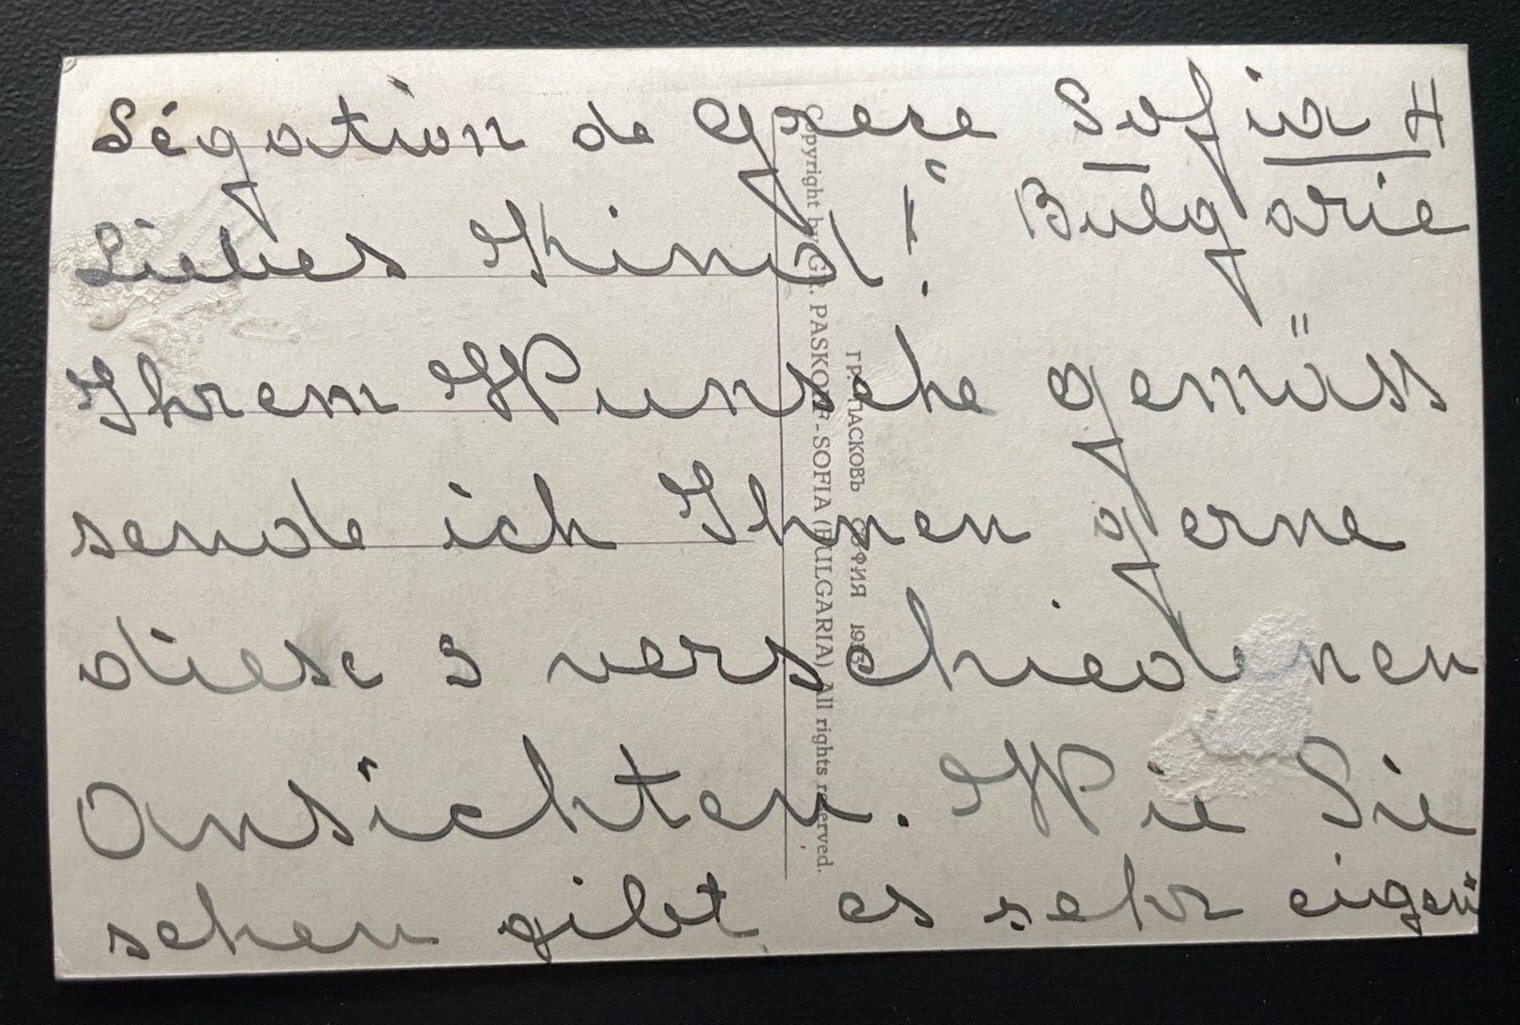 Légation de Grece Sofia 4
Bulgarie
Liebes Kind!
Ihrem Wunsche gemäss
sende ich Ihnen gerne
diese 3 verschiedenen
Ansichten. Wie Sie
sehen gibt es sehr
Copyright by GR. PASKOFF - SOFIA (BULGARIA) All rights reserved.
ГР. ПАСКОВЪ СОФИЯ